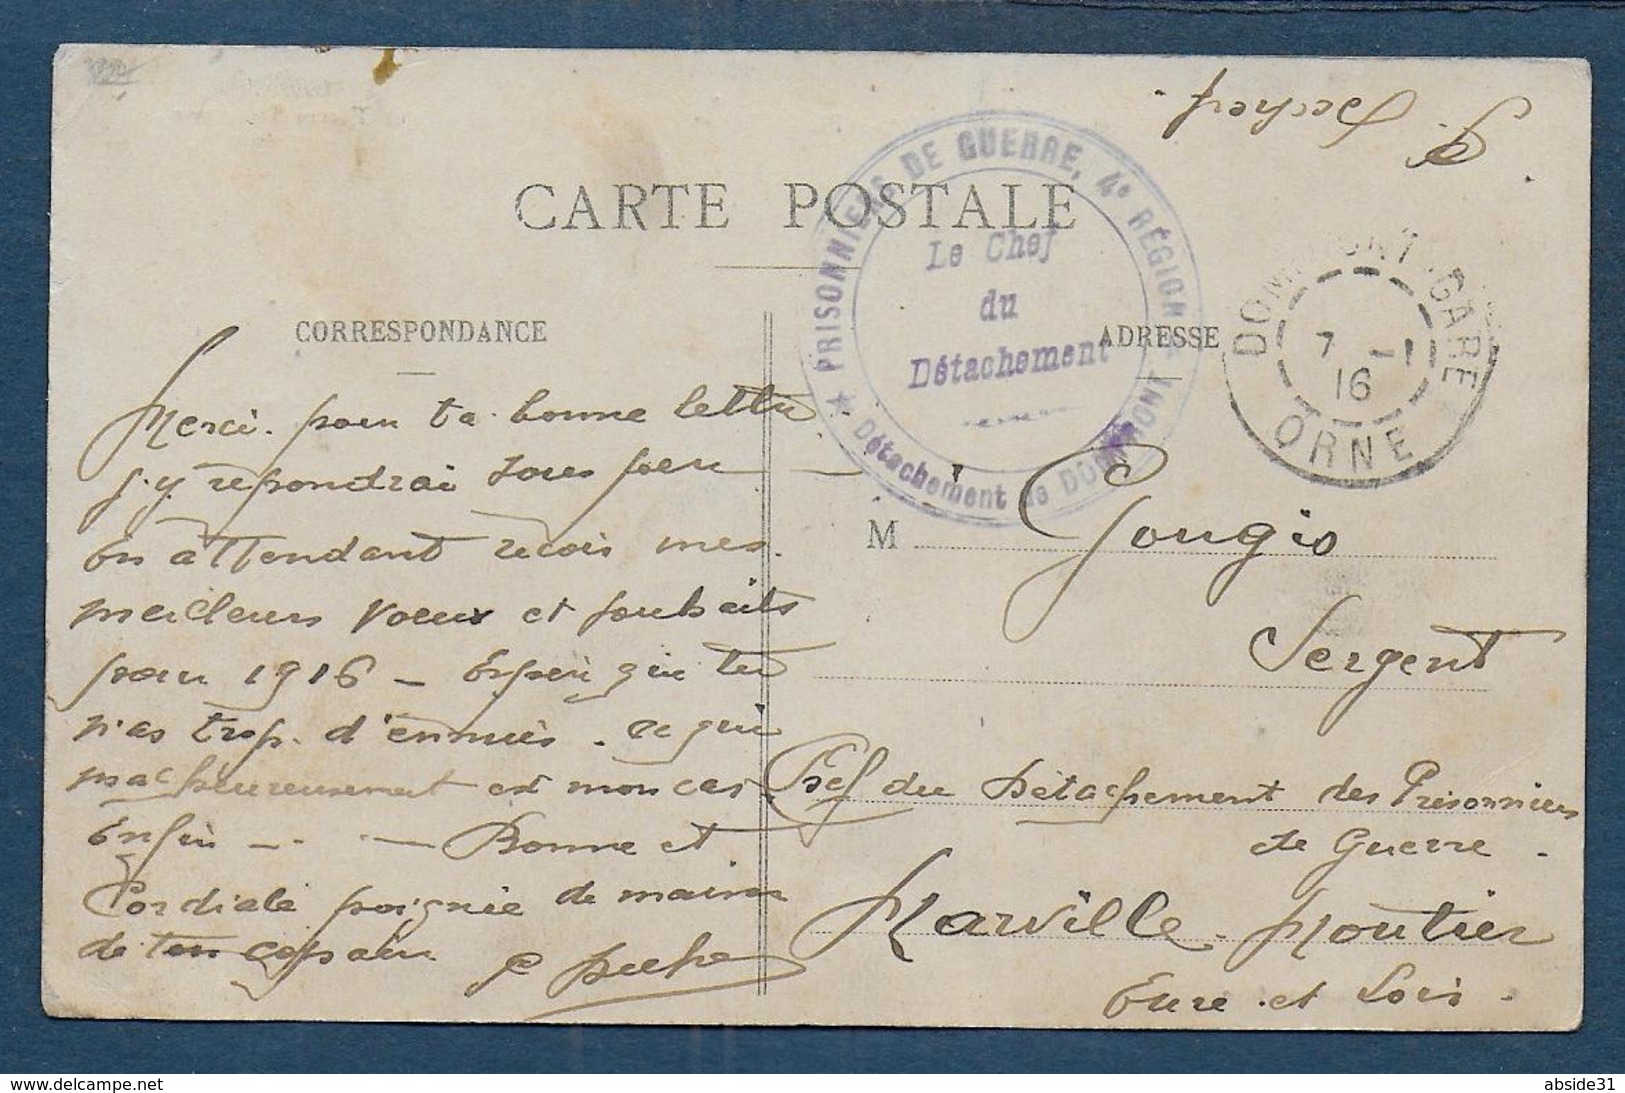 CARTE POSTALE
CORRESPONDANCE
Merci pour ta bonne lettre
j'y repondrai sous peu
En attendant recois mes
meilleurs voeux et souhaits
pour 1916 - Esperè que tu
n'as trop d'ennuis. ce qui
malheureusement est mon cas.
Enfin - . . - Bonne et
Cordiale poignée de mains
de ton copain
PRISONNIERS DE GUERRE, 4e RÉGION
Le Chef
du
Détachement
Détachement de DOMFRONT
ADRESSE
DOMFRONT-GARE
7 -1
16
ORNE
M Gougis
Sergent
Chef du Détachement des Prisonniers
de Guerre
Marville-Moutier
Eure et Loir.
abside31